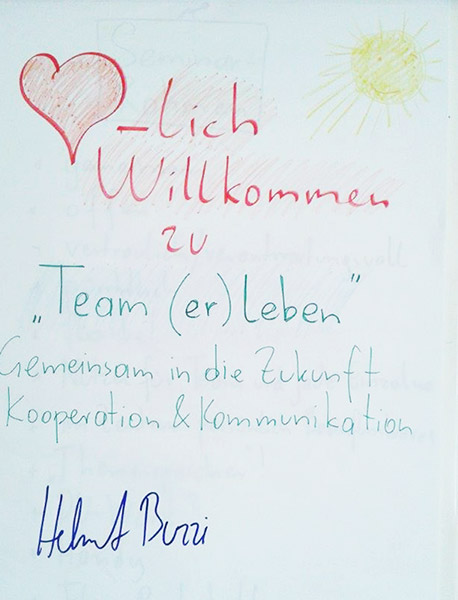 -lich
Willkommen
zu
„Team (er)leben"
Gemeinsam in die Zukunft
Kooperation & Kommunikation
Helmut Buzzi